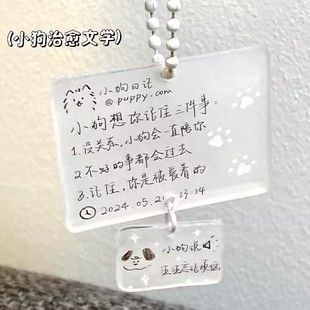 (小狗治愈文学)
小狗日记
@puppy.com
小狗想你记住三件事:
1.没关系,小狗会一直陪你
2.不好的事都会过去
3.记住,你是被爱着的
2024.05.21 13:14
小狗说
汪汪